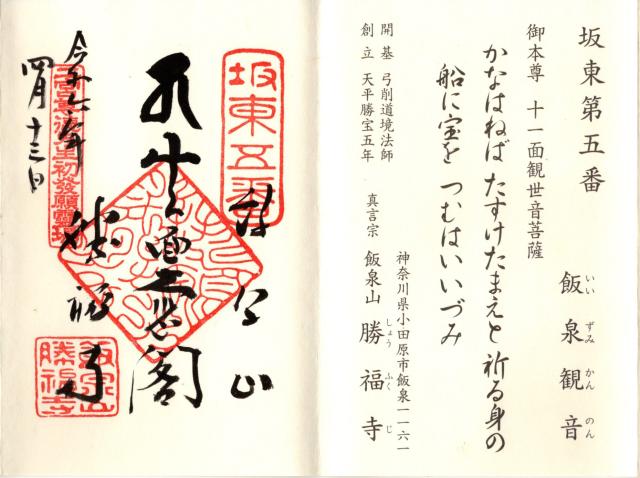 坂東第五番
飯泉観音
いいずみかんのん
御本尊 十一面観世音菩薩
かなはねば たすけたまえと 祈る身の
船に宝を つむはいいづみ
開基 弓削道境法師
創立 天平勝宝五年
神奈川県小田原市飯泉一一六一
真言宗 飯泉山 勝福寺
しょうふくじ
坂東五番
勝福寺
四月十三日
飯泉山
勝福寺